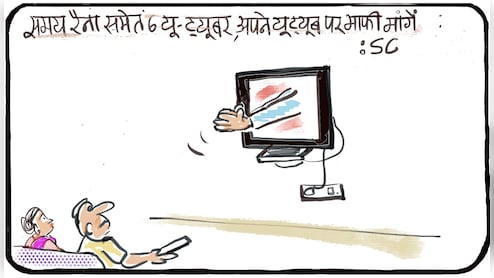 समय रैना समेत 6 यू-ट्यूबर, अपने यूट्यूब पर माफी मांगें :
: SC